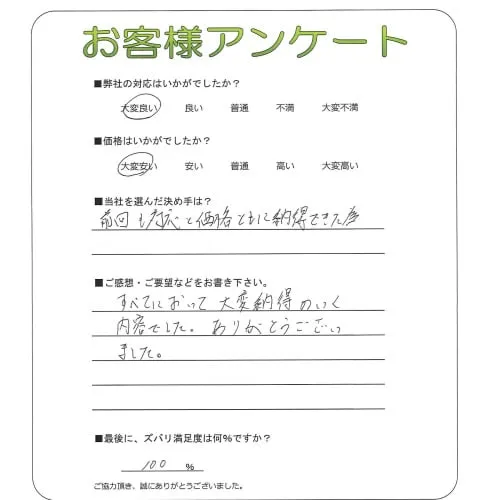 お客様アンケート
■弊社の対応はいかがでしたか?
大変良い 良い 普通 不満 大変不満
■価格はいかがでしたか?
大変安い 安い 普通 高い 大変高い
■当社を選んだ決め手は?
前回も対応と価格ともに納得できた為
■ご感想・ご要望などをお書き下さい。
すべてにおいて大変納得のいく
内容でした。ありがとうござい
ました。
■最後に、ズバリ満足度は何%ですか?
100 %
ご協力頂き、誠にありがとうございました。